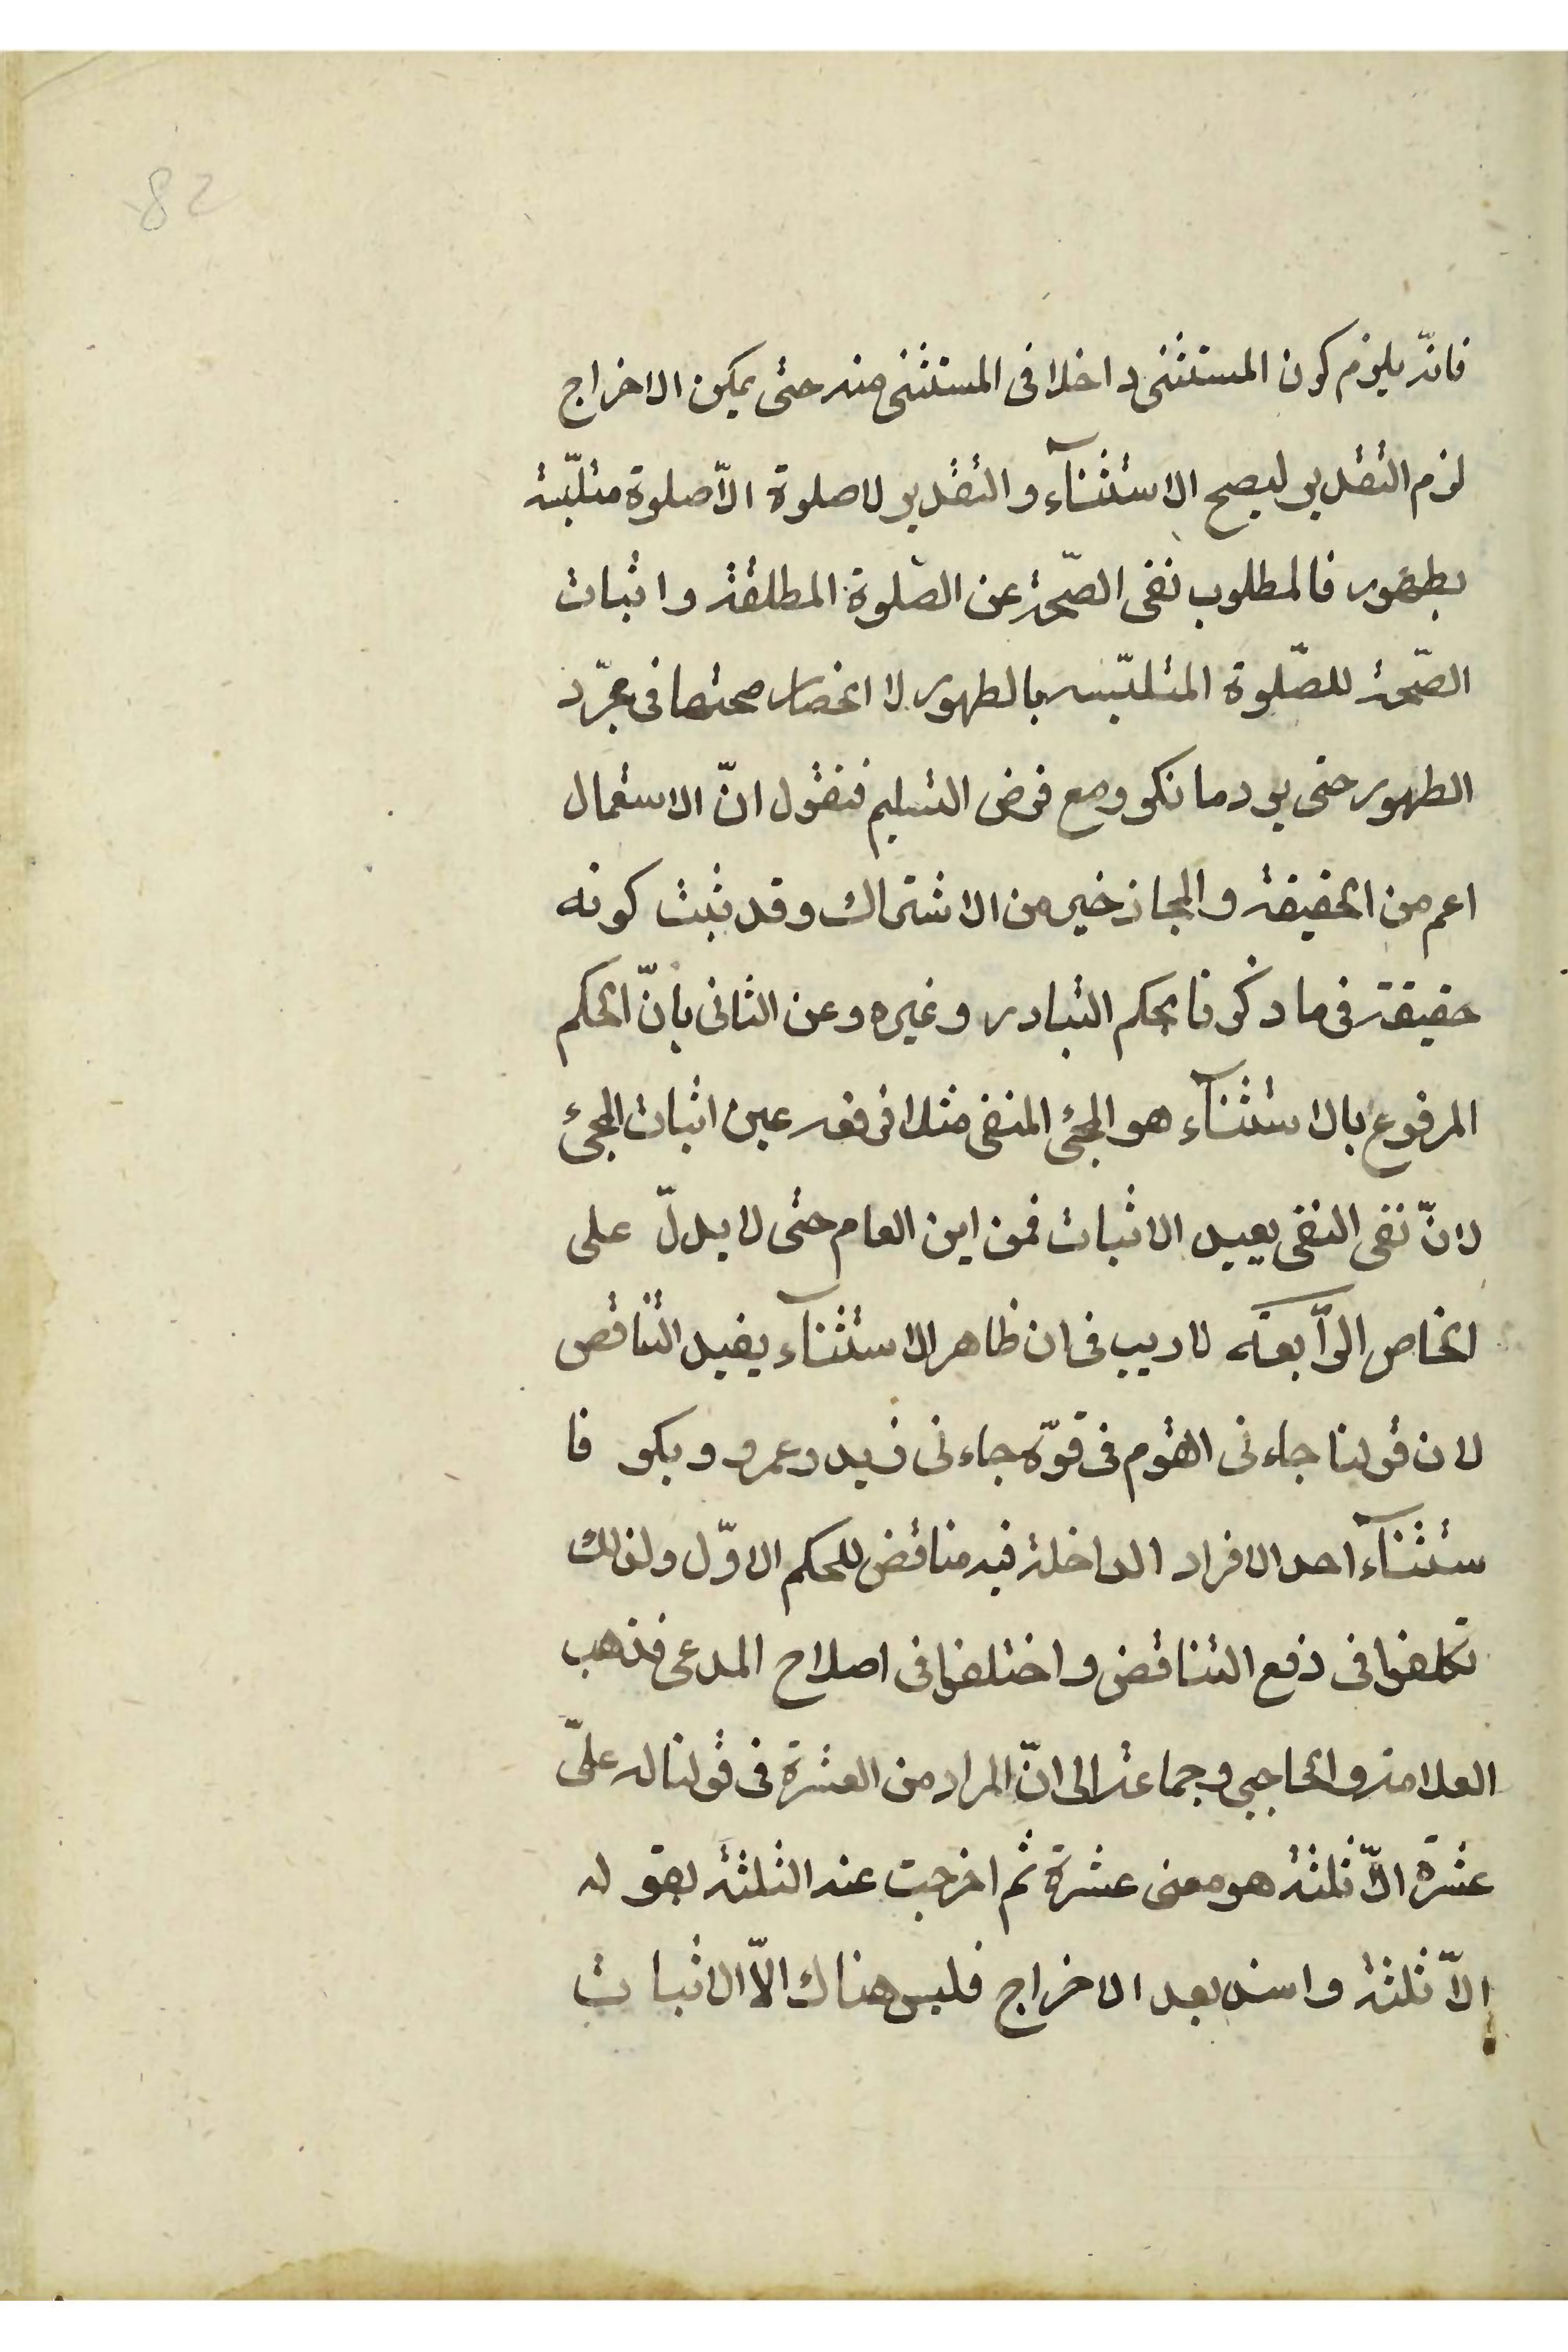 82
فانّه يلزم كون المستثنى داخلا فى المستثنى منه حتى يمكن الاخراج
لزم التقدير ليصح الاستثنآء والتقدير لا صلوة الّا صلوة متلبّسة
بطهور فالمطلوب نفى الصّحة عن الصّلوة المطلقة واثبات
الصّحة للصّلوة المتلبّسه بالطهور لا انحصار صحتها فى مجرّد
الطهور حتى يرد ما ذكر ومع فرض التسليم فنقول انّ الاستعمال
اعم من الحقيقة والمجاز خير من الاشتراك وقد ثبت كونه
حقيقة فى ما ذكرنا بحكم التبادر وغيره وعن الثانى بانّ الحكم
المرفوع بالاستثنآء هو المجئ المنفى مثلا فرفعه عين اثبات المجئ
لانّ نفى النفى يفيد الاثبات فمن اين العام حتى لا يدلّ على
الخاص الرّابعة لا ريب فى ان ظاهر الاستثنآء يفيد التناقض
لان قولنا جاءنى القوم فى قوّة جاءنى زيد وعمرو وبكر فا
ستثنآء احد الافراد الداخلة فيه مناقض للحكم الاوّل ولذلك
تكلفوا فى دفع التناقض واختلفوا فى اصلاح المدعى فذهب
العلامة والحاجبى وجماعة الى انّ المراد من العشرة فى قولنا له علىّ
عشرة الّا ثلثة هو معنى عشرة ثم اخرجت عنه الثلثة بقوله
الّا ثلثة واسند بعد الاخراج فليس هناك الّا الاثبات